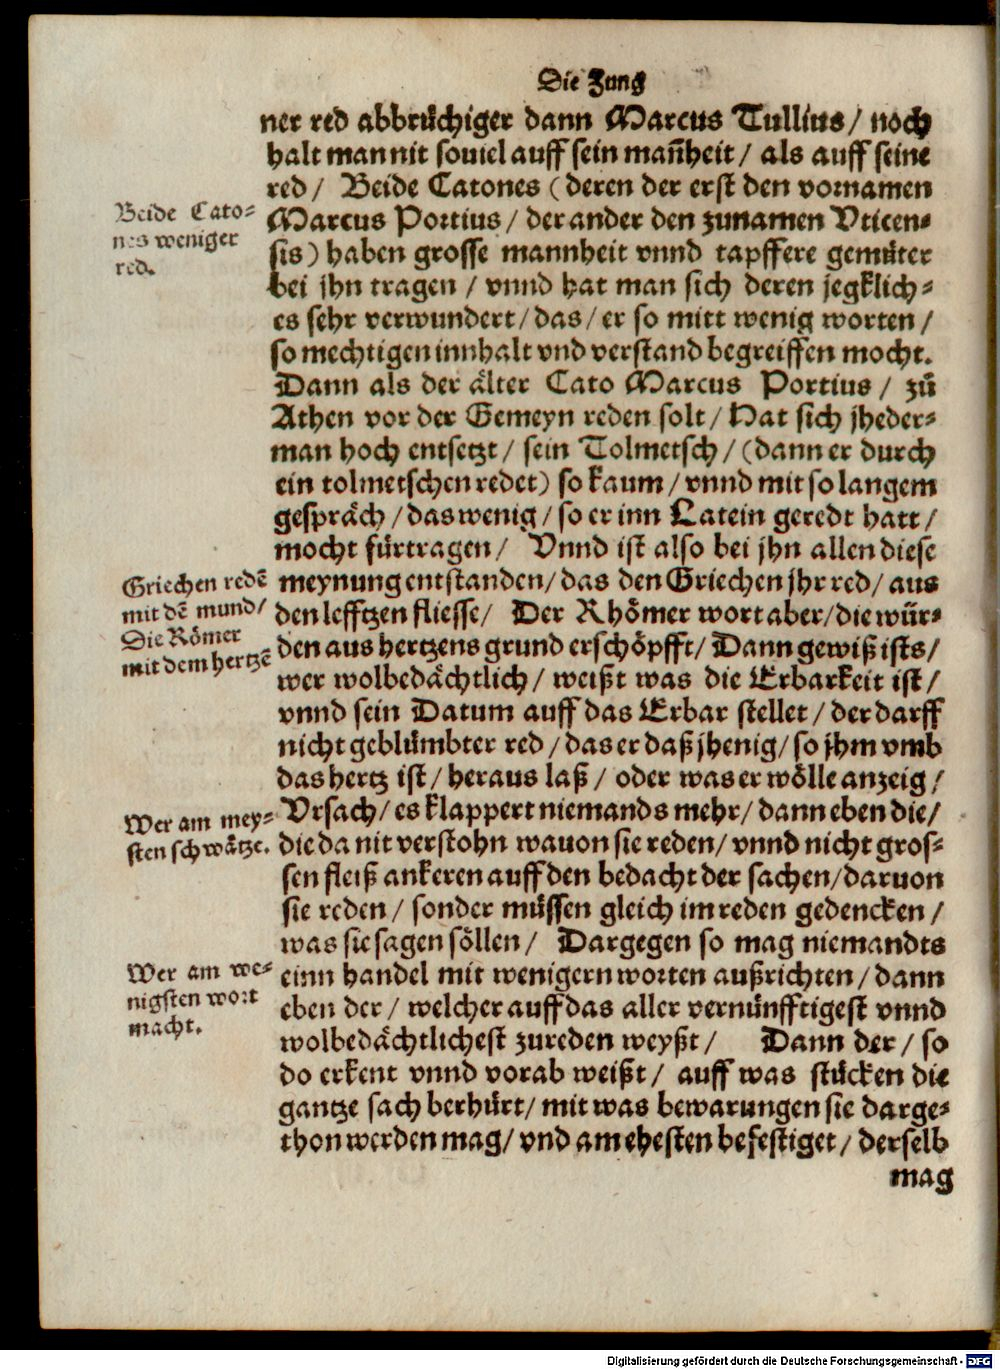 Die Zung
ner red abbrüchiger dann Marcus Tullius / noch
halt man nit souiel auff sein mañheit / als auff seine
red / Beide Catones (deren der erst den vornamen
Marcus Portius / der ander den zunamen Vticen-
sis) haben grosse mannheit vnnd tapffere gemüter
bei jhn tragen / vnnd hat man sich deren jegklich-
es sehr verwundert / das / er so mitt wenig worten /
so mechtigen innhalt vnd verstand begreiffen mocht.
Dann als der älter Cato Marcus Portius / zů
Athen vor der Gemeyn reden solt / Hat sich jheder-
man hoch entsetzt / sein Tolmetsch / (dann er durch
ein tolmetschen redet) so kaum / vnnd mit so langem
gespräch / das wenig / so er inn Latein geredt hatt /
mocht fürtragen / Vnnd ist also bei jhn allen diese
meynung entstanden / das den Griechen jhr red / aus
den lefftzen fliesse / Der Rhömer wort aber / die wür-
den aus hertzens grund erschöpfft / Dann gewiß ists /
wer wolbedächtlich / weißt was die Erbarkeit ist /
vnnd sein Datum auff das Erbar stellet / der darff
nicht geblümbter red / das er daß jhenig / so jhm vmb
das hertz ist / heraus laß / oder was er wölle anzeig /
Vrsach / es klappert niemands mehr / dann eben die /
die da nit verstohn wauon sie reden / vnnd nicht gros-
sen fleiß ankeren auff den bedacht der sachen / daruon
sie reden / sonder müssen gleich im reden gedencken /
was sie sagen söllen / Dargegen so mag niemandts
einn handel mit wenigern worten außrichten / dann
eben der / welcher auff das aller vernünfftigest vnnd
wolbedächtlichest zureden weyßt / Dann der / so
do erkent vnnd vorab weißt / auff was stücken die
gantze sach berhürt / mit was bewarungen sie darge-
thon werden mag / vnd am ehesten befestiget / derselb
mag
Beide Cato-
nes weniger
red.
Griechen redē
mit dē mund /
Die Römer
mit dem hertzē
Wer am mey-
sten schwätze.
Wer am we-
nigsten wort
macht.
Digitalisierung gefördert durch die Deutsche Forschungsgemeinschaft - DFG